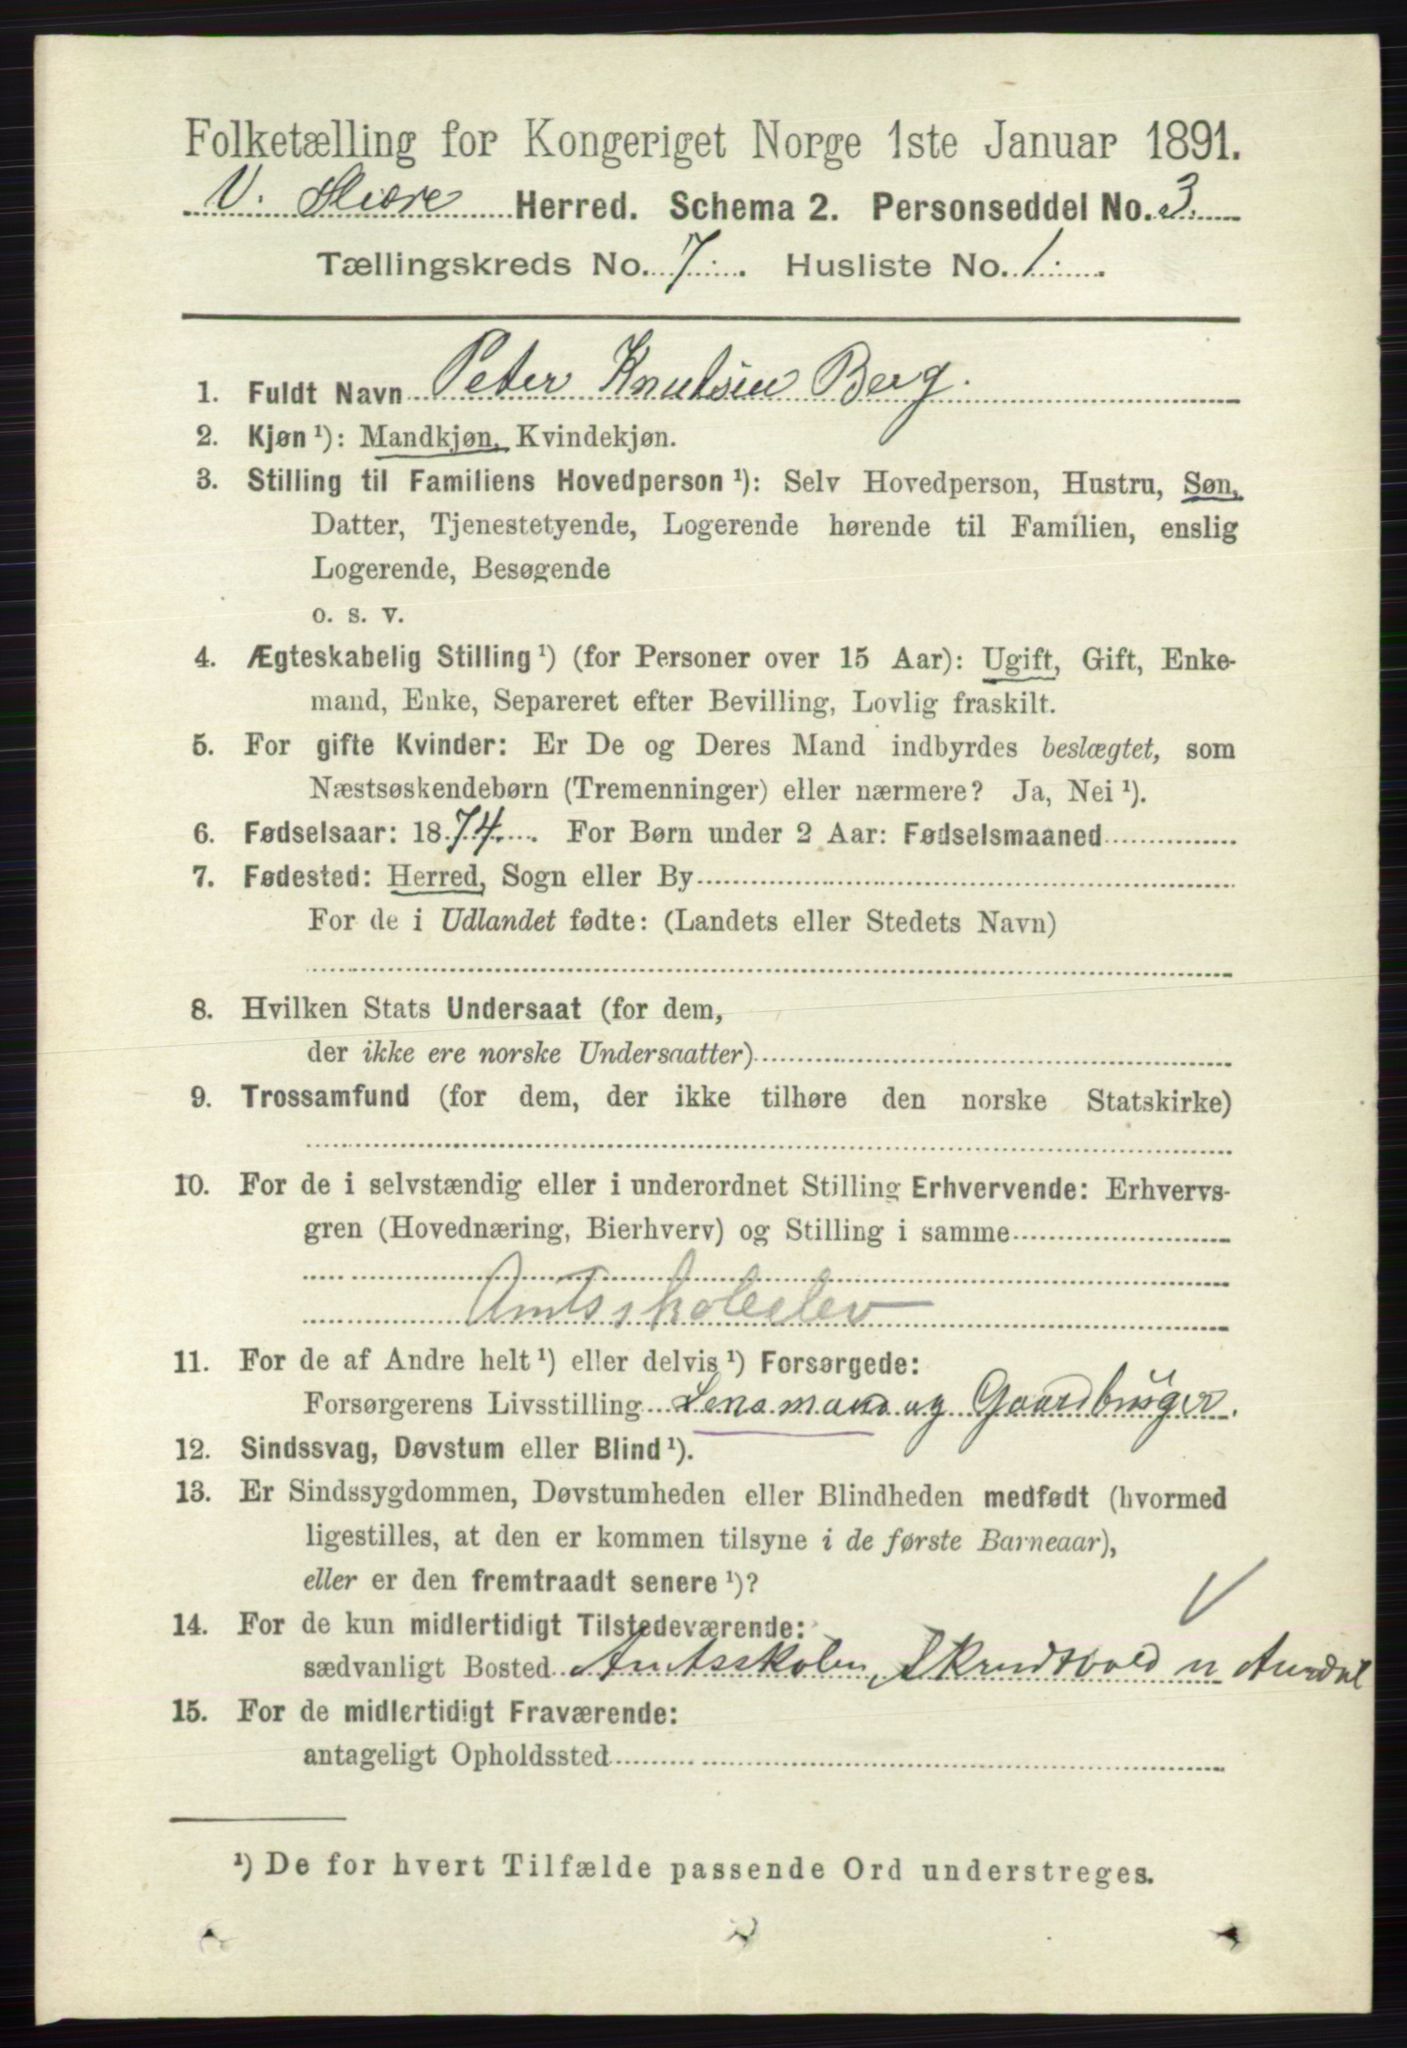 Folketælling for Kongeriget Norge 1ste Januar 1891.
V. Slidre Herred. Schema 2. Personseddel No. 3.
Tællingskreds No. 7. Husliste No. 1.
1. Fuldt Navn Peter Knutsen Berg.
2. Kjøn ¹): Mandkjøn, Kvindekjøn.
3. Stilling til Familiens Hovedperson ¹): Selv Hovedperson, Hustru, Søn,
Datter, Tjenestetyende, Logerende hørende til Familien, enslig
Logerende, Besøgende
o. s. v.
4. Ægteskabelig Stilling ¹) (for Personer over 15 Aar): Ugift, Gift, Enke-
mand, Enke, Separeret efter Bevilling, Lovlig fraskilt.
5. For gifte Kvinder: Er De og Deres Mand indbyrdes beslægtet, som
Næstsøskendebørn (Tremenninger) eller nærmere? Ja, Nei ¹).
6. Fødselsaar: 1874. For Børn under 2 Aar: Fødselsmaaned
7. Fødested: Herred, Sogn eller By
For de i Udlandet fødte: (Landets eller Stedets Navn)
8. Hvilken Stats Undersaat (for dem,
der ikke ere norske Undersaatter)
9. Trossamfund (for dem, der ikke tilhøre den norske Statskirke)
10. For de i selvstændig eller i underordnet Stilling Erhvervende: Erhvervs-
gren (Hovednæring, Bierhverv) og Stilling i samme
Amtsskoleelev
11. For de af Andre helt ¹) eller delvis ¹) Forsørgede:
Forsørgerens Livsstilling Lensmand og Gaardbruger.
12. Sindssvag, Døvstum eller Blind ¹).
13. Er Sindssygdommen, Døvstumheden eller Blindheden medfødt (hvormed
ligestilles, at den er kommen tilsyne i de første Barneaar),
eller er den fremtraadt senere ¹)?
14. For de kun midlertidigt Tilstedeværende:
sædvanligt Bosted Amtsskolen, Skrudtvold n Aurdal
15. For de midlertidigt Fraværende:
antageligt Opholdssted
¹) De for hvert Tilfælde passende Ord understreges.